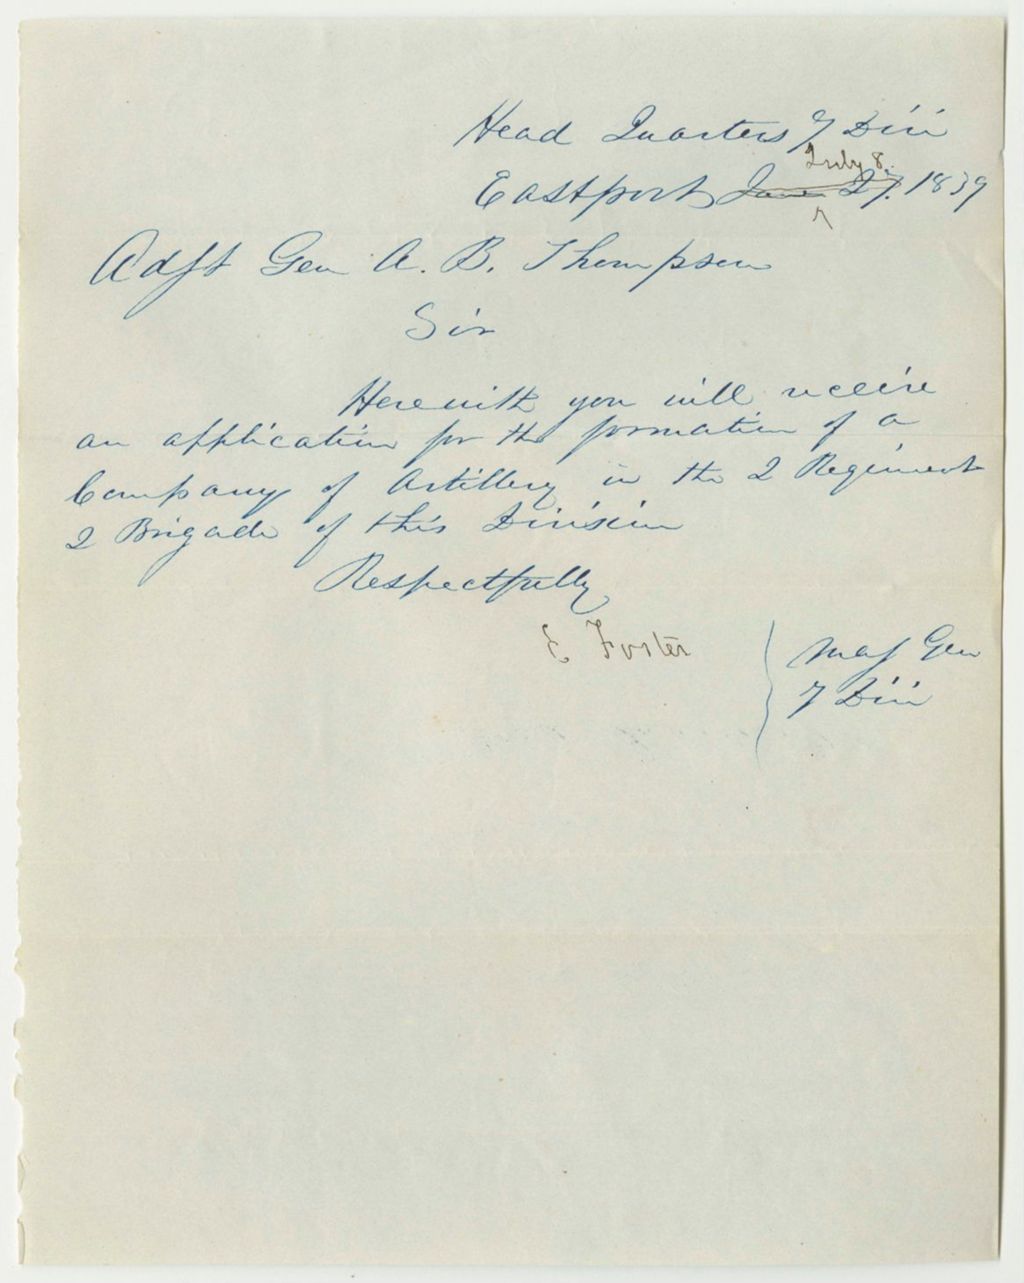 Head Quarters 7 Div
July 8.
Eastport June 27. 1839
Adjt Gen A. B. Thompson
Sir
Herewith you will receive
an application for the formation of a
Company of Artillery in the 2 Regiment
2 Brigade of this Division
Respectfully
E Foster
Maj Gen
7 Div